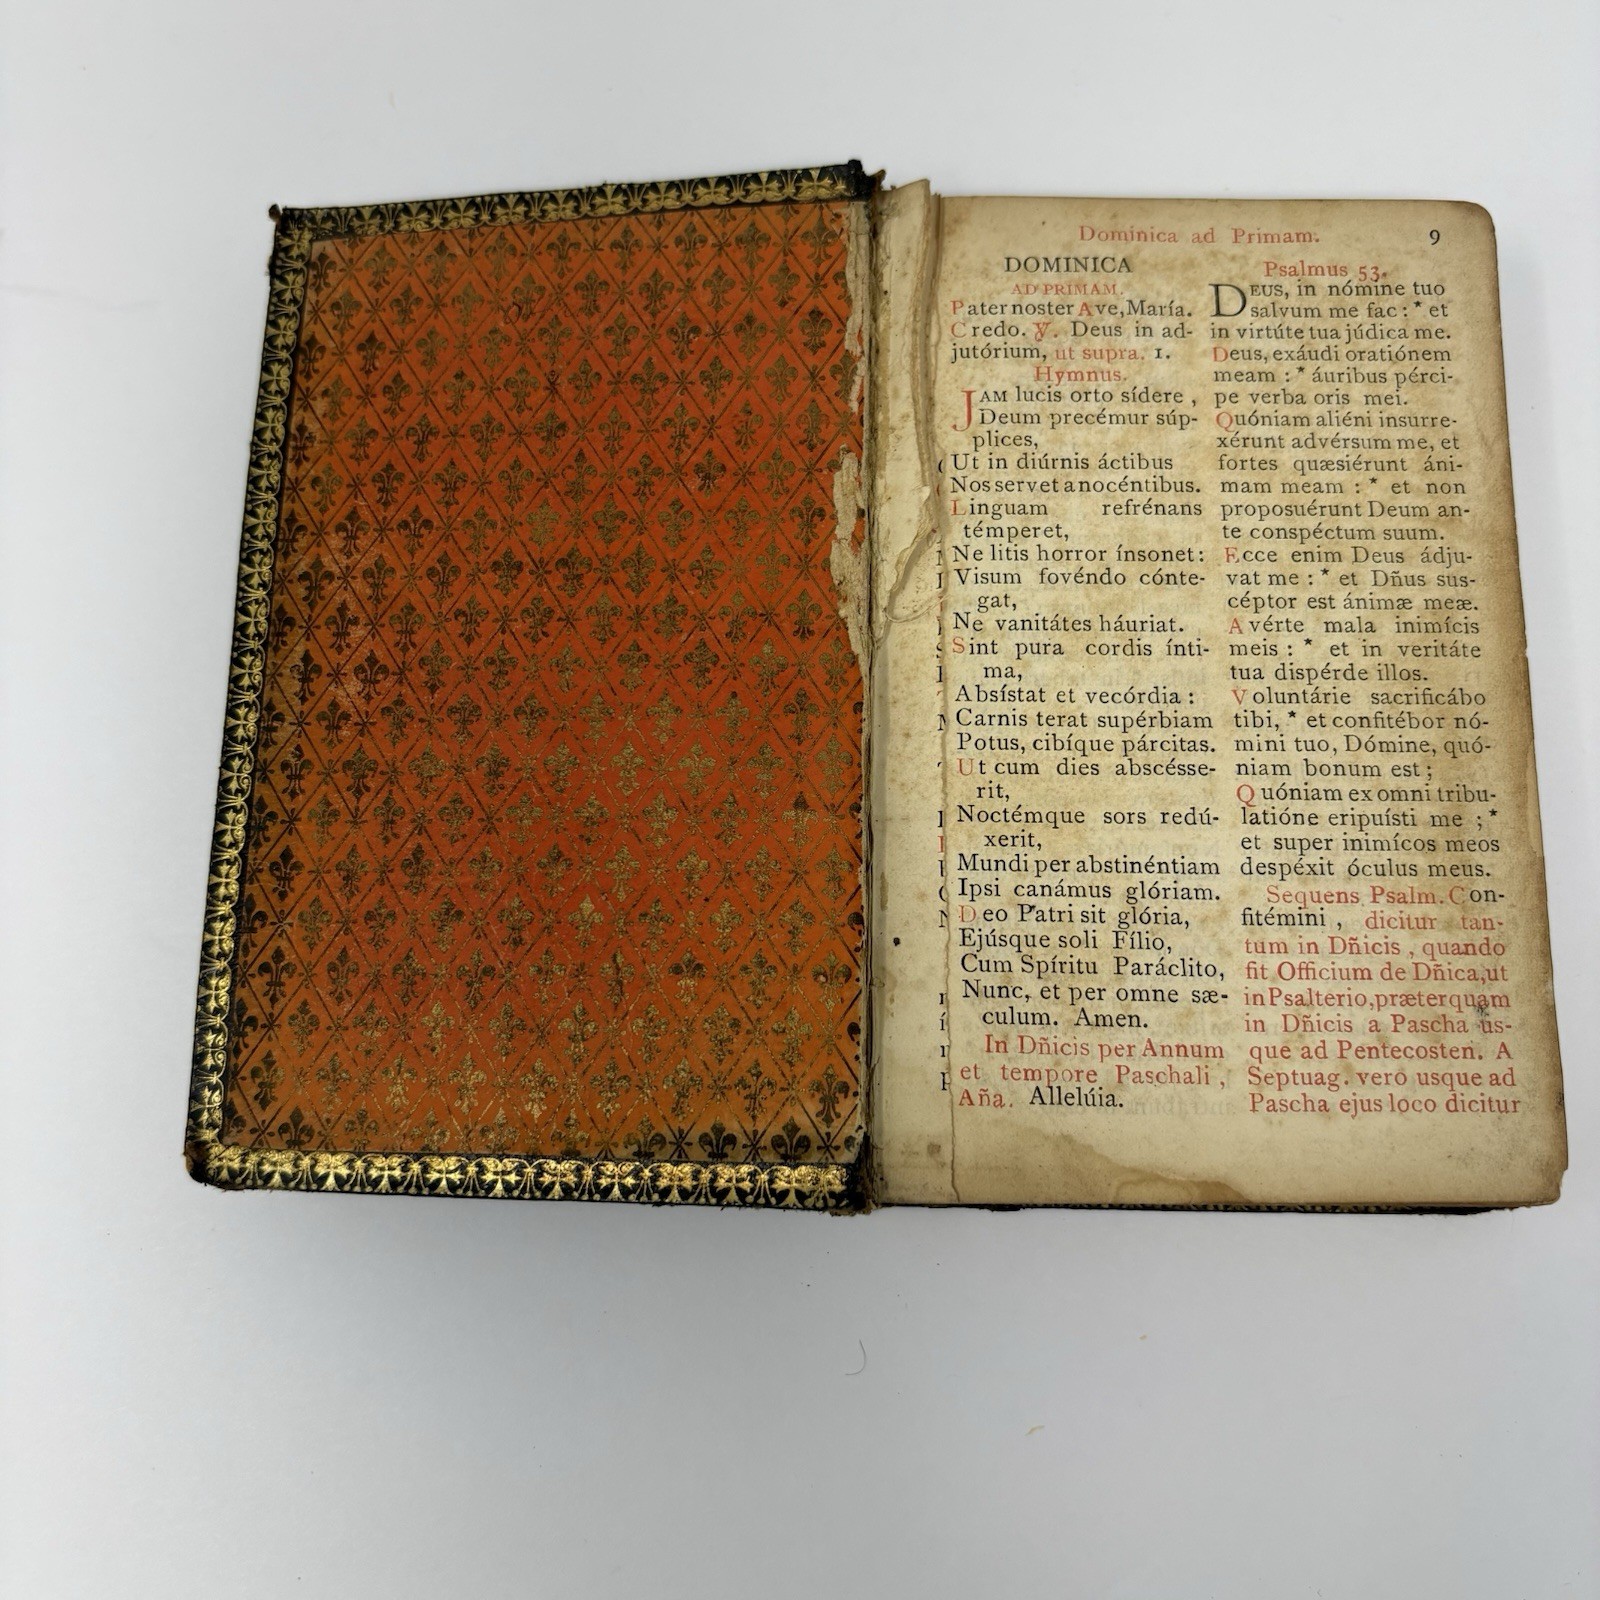 Dominica ad Primam. 9
DOMINICA
AD PRIMAM.
Pater noster Ave, María.
Credo. ℣. Deus in ad-
jutórium, ut supra. 1.
Hymnus.
JAM lucis orto sídere ,
Deum precémur súp-
plices,
Ut in diúrnis áctibus
Nos servet a nocéntibus.
Linguam refrénans
témperet,
Ne litis horror ínsonet:
Visum fovéndo cónte-
gat,
Ne vanitátes háuriat.
Sint pura cordis ínti-
ma,
Absístat et vecórdia :
Carnis terat supérbiam
Potus, cibíque párcitas.
Ut cum dies abscésse-
rit,
Noctémque sors redú-
xerit,
Mundi per abstinéntiam
Ipsi canámus glóriam.
Deo Patri sit glória,
Ejúsque soli Fílio,
Cum Spíritu Paráclito,
Nunc, et per omne sæ-
culum. Amen.
In Dñicis per Annum
et tempore Paschali ,
Aña. Allelúia.
Psalmus 53.
DEUS, in nómine tuo
salvum me fac : * et
in virtúte tua júdica me.
Deus, exáudi oratiónem
meam : * áuribus pérci-
pe verba oris mei.
Quóniam aliéni insurre-
xérunt advérsum me, et
fortes quæsiérunt áni-
mam meam : * et non
proposuérunt Deum an-
te conspéctum suum.
Ecce enim Deus ádju-
vat me : * et Dñus sus-
céptor est ánimæ meæ.
Avérte mala inimícis
meis : * et in veritáte
tua dispérde illos.
Voluntárie sacrificábo
tibi, * et confitébor nó-
mini tuo, Dómine, quó-
niam bonum est ;
Quóniam ex omni tribu-
latióne eripuísti me ; *
et super inimícos meos
despéxit óculus meus.
Sequens Psalm. Con-
fitémini , dicitur tan-
tum in Dñicis , quando
fit Officium de Dñica, ut
in Psalterio, præterquam
in Dñicis a Pascha us-
que ad Pentecosten. A
Septuag. vero usque ad
Pascha ejus loco dicitur